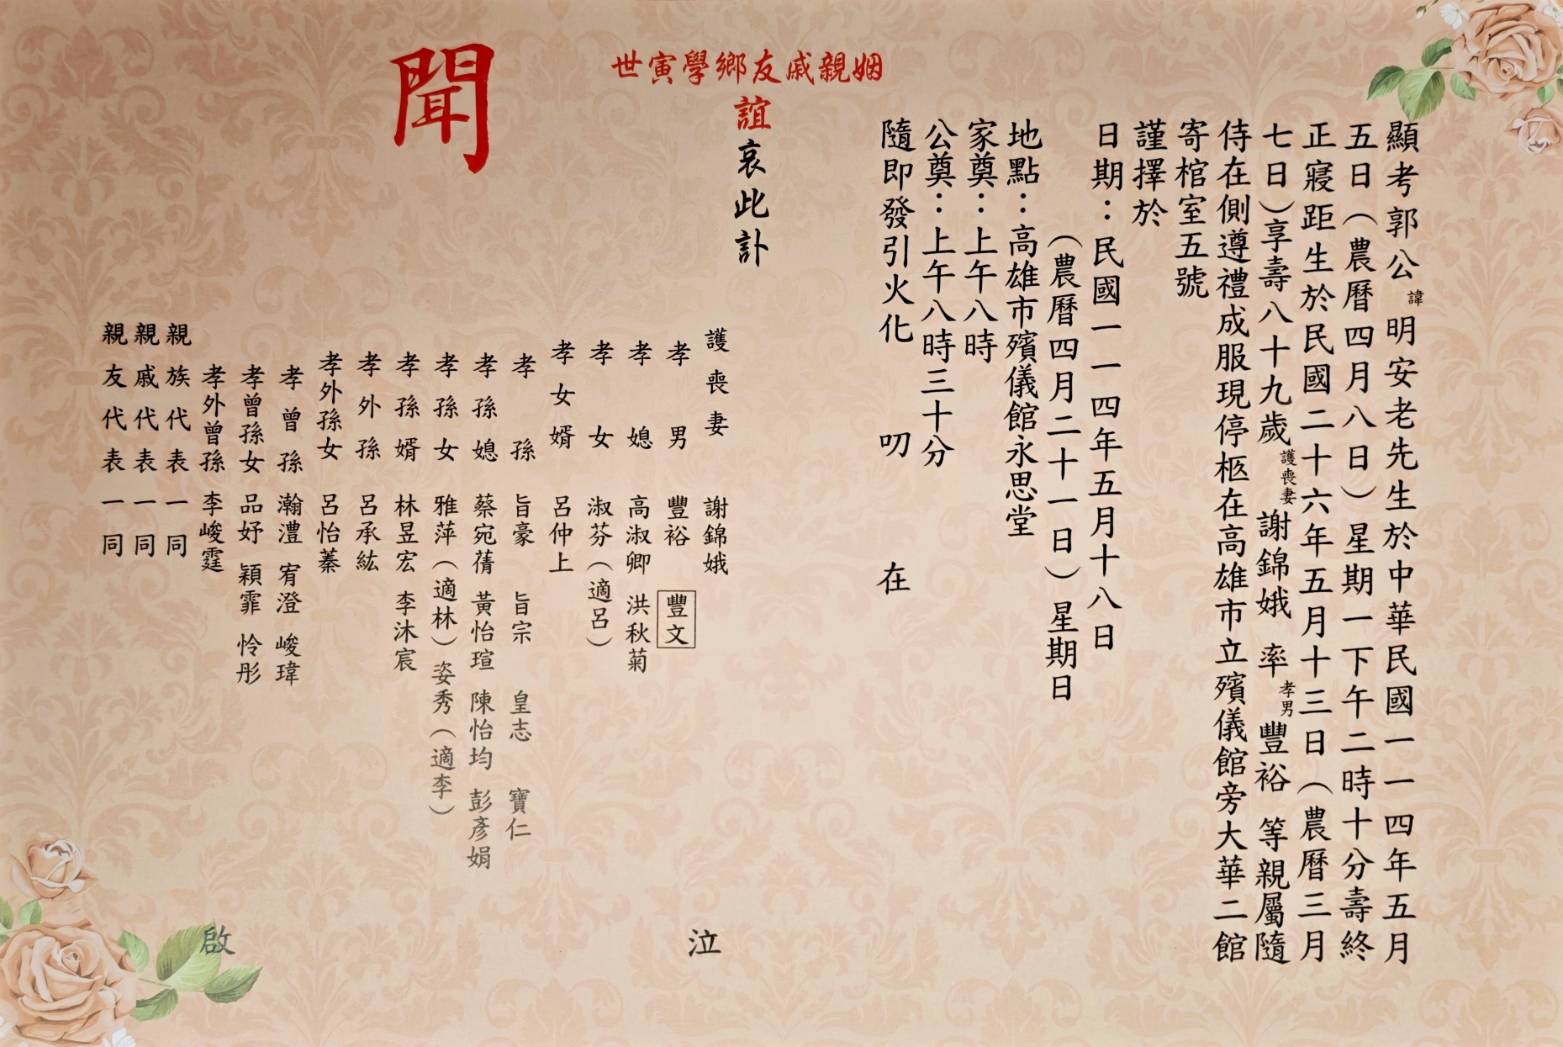 顯考郭公諱明安老先生於中華民國一一四年五月
五日（農曆四月八日）星期一下午二時十分壽終
正寢距生於民國二十六年五月十三日（農曆三月
七日）享壽八十九歲護喪妻謝錦娥 率孝男豐裕 等親屬隨
侍在側遵禮成服現停柩在高雄市立殯儀館旁大華二館
寄棺室五號
謹擇於
日期：民國一一四年五月十八日
（農曆四月二十一日）星期日
地點：高雄市殯儀館永思堂
家奠：上午八時
公奠：上午八時三十分
隨即發引火化 叨 在
姻親戚友鄉學寅世
誼哀此訃
聞
護喪妻 謝錦娥
孝男 豐裕 豐文
孝媳 高淑卿 洪秋菊
孝女 淑芬（適呂）
孝女婿 呂仲上
孝孫 旨豪 旨宗 皇志 寶仁
孝孫媳 蔡宛蒨 黃怡瑄 陳怡均 彭彥娟
孝孫女 雅萍（適林）姿秀（適李）
孝孫婿 林昱宏 李沐宸
孝外孫 呂承紘
孝外孫女 呂怡蓁
孝曾孫 瀚澧 宥澄 峻瑋
孝曾孫女 品妤 穎霏 怜彤
孝外曾孫 李峻霆
親族代表一同
親戚代表一同
親友代表一同
泣
啟